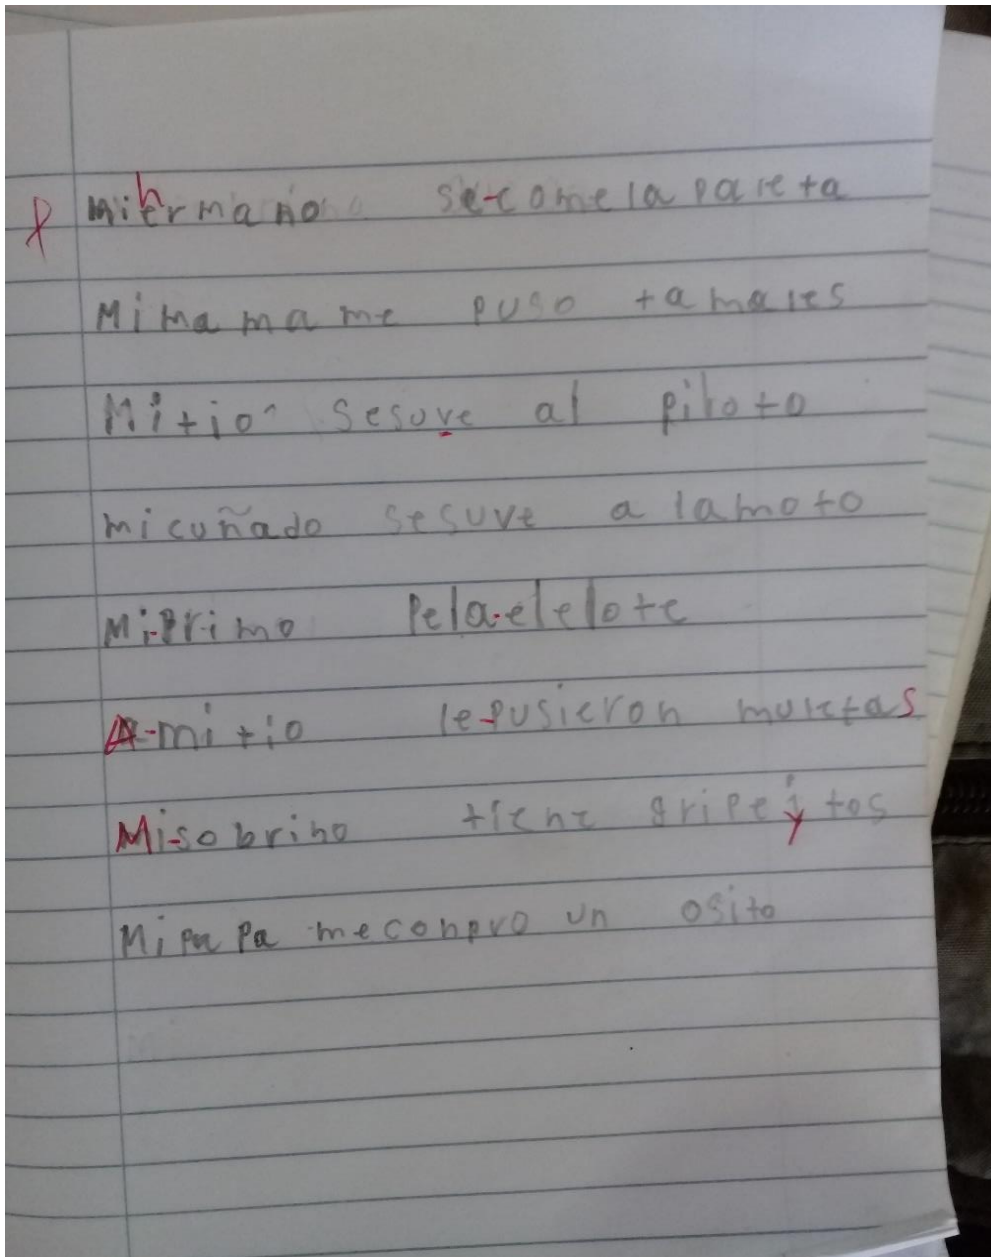 Mihermano se-comelapaleta
Mimamame puso tamales
Mitio sesuve al piloto
micuñado sesuve a lamoto
Mi-primo Pela-elelote
A-mi tio le-pusieron muletas
Mi-sobrino tiene gripe y tos
Mipapa meconpro un osito